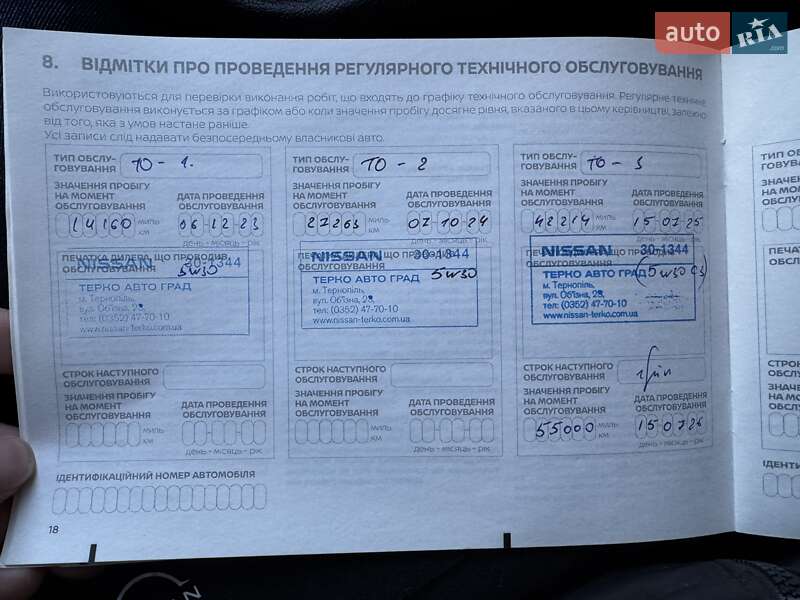 auto RIA.com
8. ВІДМІТКИ ПРО ПРОВЕДЕННЯ РЕГУЛЯРНОГО ТЕХНІЧНОГО ОБСЛУГОВУВАННЯ
Використовуються для перевірки виконання робіт, що входять до графіку технічного обслуговування. Регулярне технічне
обслуговування виконується за графіком або коли значення пробігу досягне рівня, вказаного в цьому керівництві, залежно
від того, яка з умов настане раніше.
Усі записи слід надавати безпосередньому власникові авто.
ТИП ОБСЛУ-
ГОВУВАННЯ
ТО - 1.
ЗНАЧЕННЯ ПРОБІГУ
НА МОМЕНТ
ОБСЛУГОВУВАННЯ
ДАТА ПРОВЕДЕННЯ
ОБСЛУГОВУВАННЯ
14160 МИЛЬ КМ
06-12-23
день - місяць - рік
ПЕЧАТКА ДИЛЕРА, ЩО ПРОВОДИВ
ОБСЛУГОВУВАННЯ
NISSAN 30-1344
5w30
ТЕРКО АВТО ГРАД
м. Тернопіль,
вул. Об'їзна, 23,
тел: (0352) 47-70-10
www.nissan-terko.com.ua
СТРОК НАСТУПНОГО
ОБСЛУГОВУВАННЯ
ЗНАЧЕННЯ ПРОБІГУ
НА МОМЕНТ
ОБСЛУГОВУВАННЯ
ДАТА ПРОВЕДЕННЯ
ОБСЛУГОВУВАННЯ
МИЛЬ КМ
день - місяць - рік
ТИП ОБСЛУ-
ГОВУВАННЯ
ТО - 2
ЗНАЧЕННЯ ПРОБІГУ
НА МОМЕНТ
ОБСЛУГОВУВАННЯ
ДАТА ПРОВЕДЕННЯ
ОБСЛУГОВУВАННЯ
27263 МИЛЬ КМ
07-10-24
день - місяць - рік
NISSAN 30-1344
5w30
ТЕРКО АВТО ГРАД
м. Тернопіль,
вул. Об'їзна, 23,
тел: (0352) 47-70-10
www.nissan-terko.com.ua
СТРОК НАСТУПНОГО
ОБСЛУГОВУВАННЯ
ЗНАЧЕННЯ ПРОБІГУ
НА МОМЕНТ
ОБСЛУГОВУВАННЯ
ДАТА ПРОВЕДЕННЯ
ОБСЛУГОВУВАННЯ
МИЛЬ КМ
день - місяць - рік
ТИП ОБСЛУ-
ГОВУВАННЯ
ТО - 3
ЗНАЧЕННЯ ПРОБІГУ
НА МОМЕНТ
ОБСЛУГОВУВАННЯ
ДАТА ПРОВЕДЕННЯ
ОБСЛУГОВУВАННЯ
42214 МИЛЬ КМ
15-07-25
день - місяць - рік
NISSAN 30-1344
ТЕРКО АВТО ГРАД (5w30 C3)
м. Тернопіль,
вул. Об'їзна, 23,
тел: (0352) 47-70-10
www.nissan-terko.com.ua
СТРОК НАСТУПНОГО
ОБСЛУГОВУВАННЯ
ЗНАЧЕННЯ ПРОБІГУ
НА МОМЕНТ
ОБСЛУГОВУВАННЯ
ДАТА ПРОВЕДЕННЯ
ОБСЛУГОВУВАННЯ
55000 МИЛЬ КМ
15-07-26
день - місяць - рік
ІДЕНТИФІКАЦІЙНИЙ НОМЕР АВТОМОБІЛЯ
18